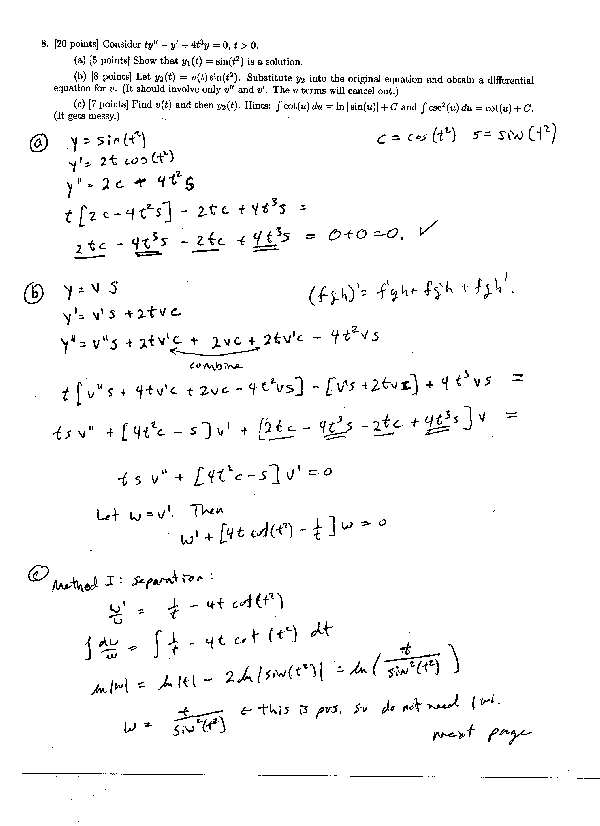 8. [20 points] Consider ty'' − y' + 4t³y = 0, t > 0.
(a) [5 points] Show that y₁(t) = sin(t²) is a solution.
(b) [8 points] Let y₂(t) = v(t) sin(t²). Substitute y₂ into the original equation and obtain a differential
equation for v. (It should involve only v'' and v'. The v terms will cancel out.)
(c) [7 points] Find v(t) and then y₂(t). Hints: ∫ cot(u) du = ln |sin(u)| + C and ∫ csc²(u) du = cot(u) + C.
(It gets messy.)
(a) y = sin(t²) c = cos(t²) s = sin(t²)
y' = 2t cos(t²)
y'' = 2c + 4t²s
t[2c − 4t²s] − 2tc + 4t³s =
2tc − 4t³s − 2tc + 4t³s = 0+0=0. ✓
(b) y = v s (fgh)' = f'gh + fg'h + fgh'.
y' = v's + 2tvc
y'' = v''s + 2tv'c + 2vc + 2tv'c − 4t²vs
combine
t[v''s + 4tv'c + 2vc − 4t²vs] − [v's + 2tvc] + 4t³vs =
tsv'' + [4t²c − s]v' + [2tc − 4t³s − 2tc + 4t³s]v =
tsv'' + [4t²c − s]v' = 0
Let w = v'. Then
w' + [4t cot(t²) − 1/t]w = 0
(c) Method I: separation:
w'/w = 1/t − 4t cot(t²)
∫ dw/w = ∫ 1/t − 4t cot(t²) dt
ln|w| = ln|t| − 2ln|sin(t²)| = ln(t/sin²(t²))
w = t/sin²(t²) ← this is pos. so do not need |w|.
next page